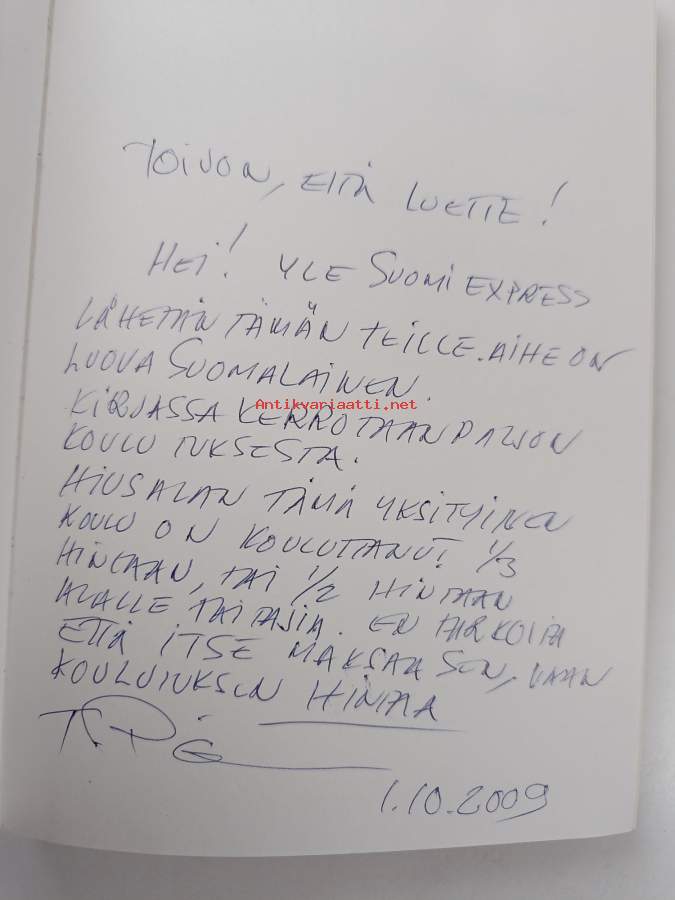 TOIVON, ETTÄ LUETTE!
HEI! YLE SUOMI EXPRESS
LÄHETÄN TÄMÄN TEILLE. AIHE ON
LUOVA SUOMALAINEN.
Antikvariaatti.net
KIRJASSA KERROTAAN PALJON
KOULUTUKSESTA.
HIUSALAN TÄMÄ YKSITYINEN
KOULU ON KOULUTTANUT 1/3
HINTAAN, TAI 1/2 HINTAAN
ALALLE TAITAJIA. EN TARKOITA
ETTÄ ITSE MAKSAA SEN, VAAN
KOULUTUKSEN HINTAA
1.10.2009